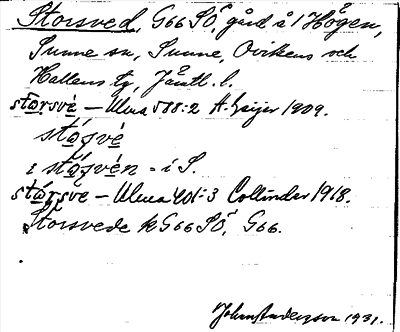 Storsved, G66 SÖ, gård å 1 Högen,
Sunne sn, Sunne, Ovikens och
Hallens tg, Jämtl. l.
stǫrsvé – Ulma 588:2 H. Geijer 1909.
stǫ́rsvé
i stǫ́rsvén = i S.
stǫ́rsve – Ulma 401:3 Collinder 1918.
Storsvede k G66 SÖ, G66.
1931.